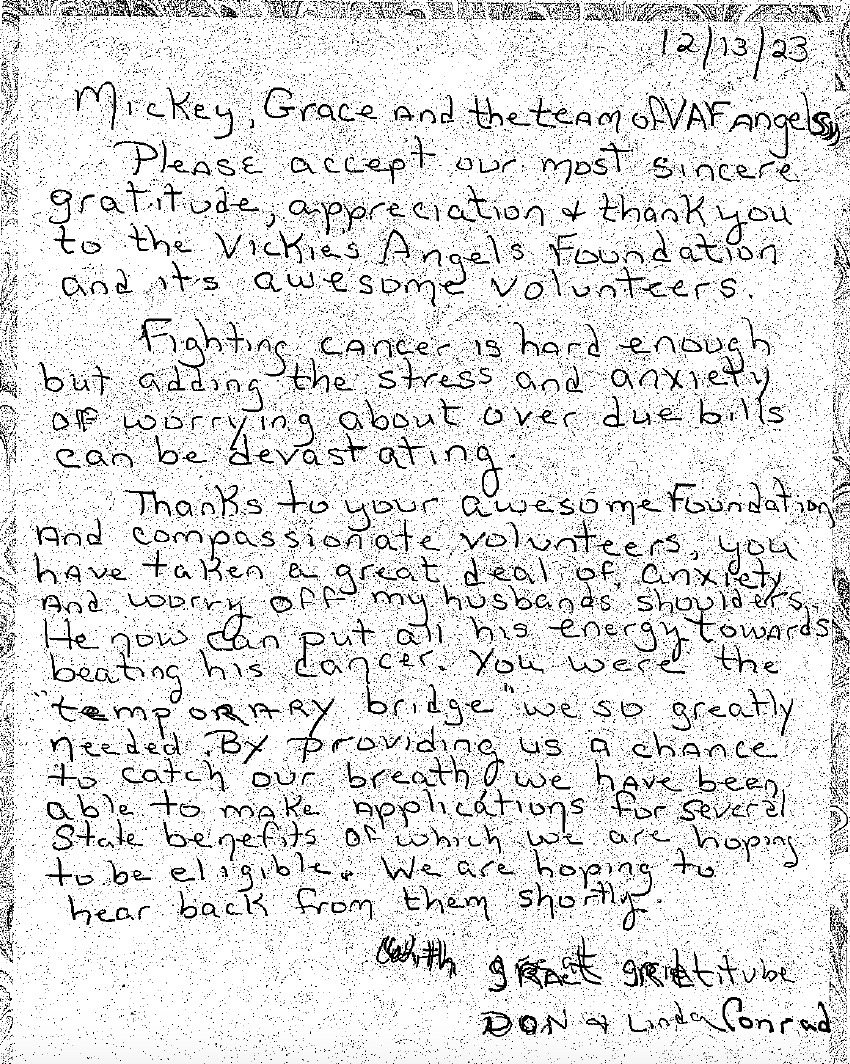 12/13/23
Mickey, Grace and the team of VAF Angels,
Please accept our most sincere
gratitude, appreciation & thank you
to the Vickies Angels Foundation
and its awesome volunteers.
Fighting cancer is hard enough
but adding the stress and anxiety
of worrying about over due bills
can be devastating.
Thanks to your awesome Foundation
And compassionate volunteers, you
have taken a great deal of anxiety
And worry off my husbands shoulders.
He now can put all his energy towards
beating his cancer. You were the
"temporary bridge" we so greatly
needed. By providing us a chance
to catch our breath, we have been
able to make applications for several
State benefits of which we are hoping
to be eligible. We are hoping to
hear back from them shortly.
With great gratitube
Don & Linda Conrad